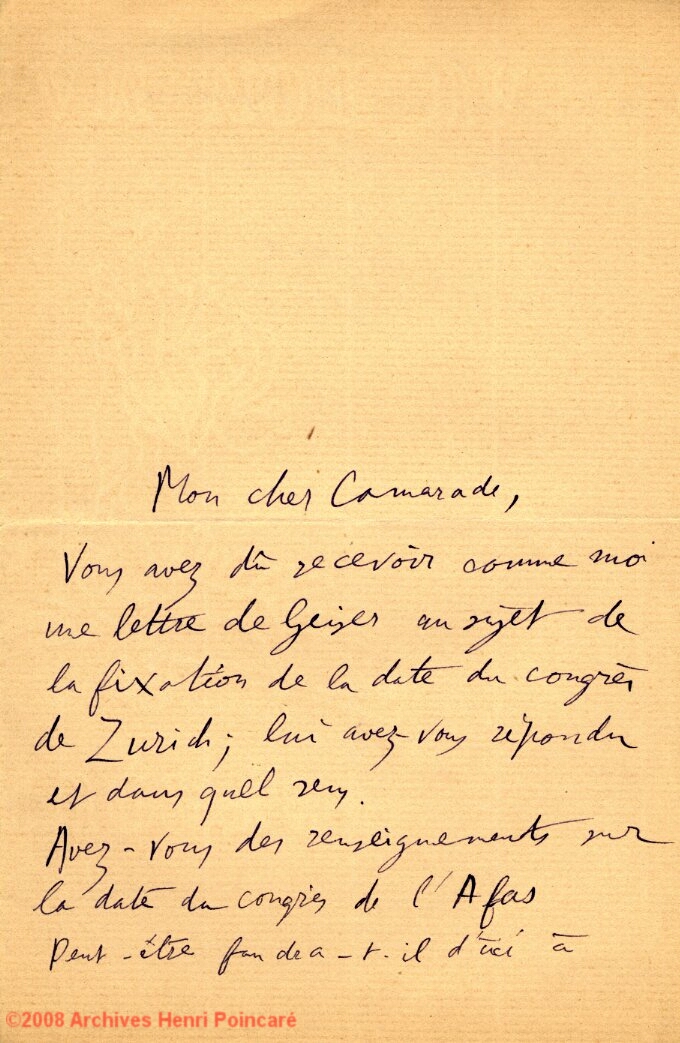 Mon cher Camarade,
Vous avez dû recevoir comme moi
une lettre de Geiser au sujet de
la fixation de la date du congrès
de Zurich; lui avez-vous répondu
et dans quel sens.
Avez-vous des renseignements sur
la date du congrès de l'Afas
Peut-être faudra-t-il d'ici à
©2008 Archives Henri Poincaré